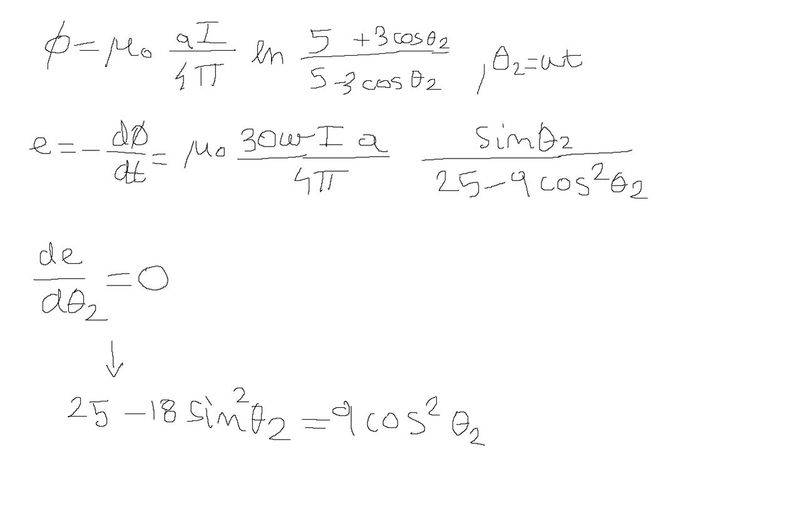 ϕ = μ₀ aI/4π ln (5 + 3cosθ₂)/(5 - 3cosθ₂) , θ₂=ωt
e = - dϕ/dt = μ₀ 30ωI a/4π sinθ₂/(25 - 9cos²θ₂)
de/dθ₂ = 0
↓
25 - 18 sin²θ₂ = 9cos²θ₂